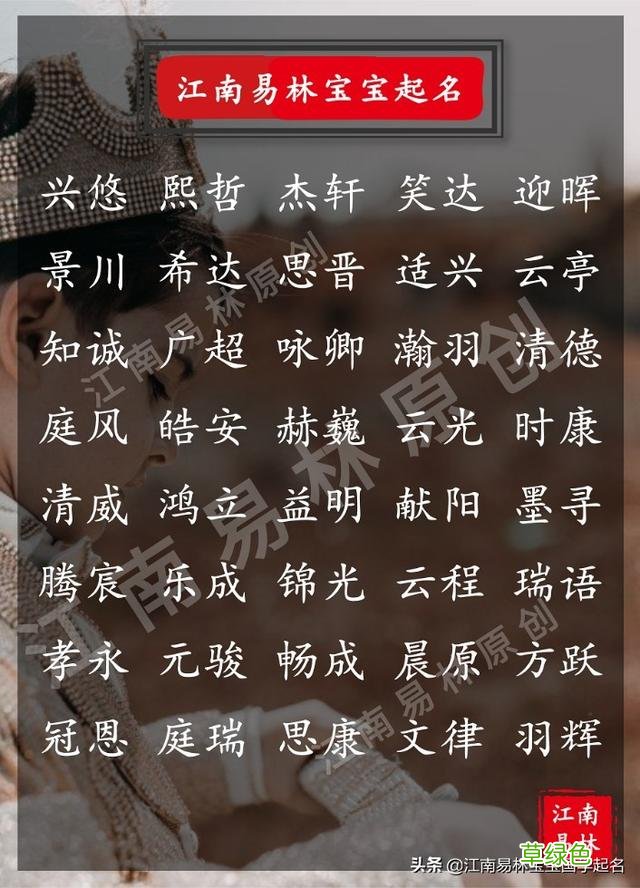 江南易林宝宝起名
兴悠 熙哲 杰轩 笑达 迎晖
景川 希达 思晋 适兴 云亭
知诚 广超 咏卿 瀚羽 清德
庭风 皓安 赫巍 云光 时康
清威 鸿立 益明 献阳 墨寻
腾宸 乐成 锦光 云程 瑞语
孝永 元骏 畅成 晨原 方跃
冠恩 庭瑞 思康 文律 羽辉
江南易林原创
江南易林原创
江南易林原创
江南
易林
草绿色
头条 @江南易林宝宝国学起名